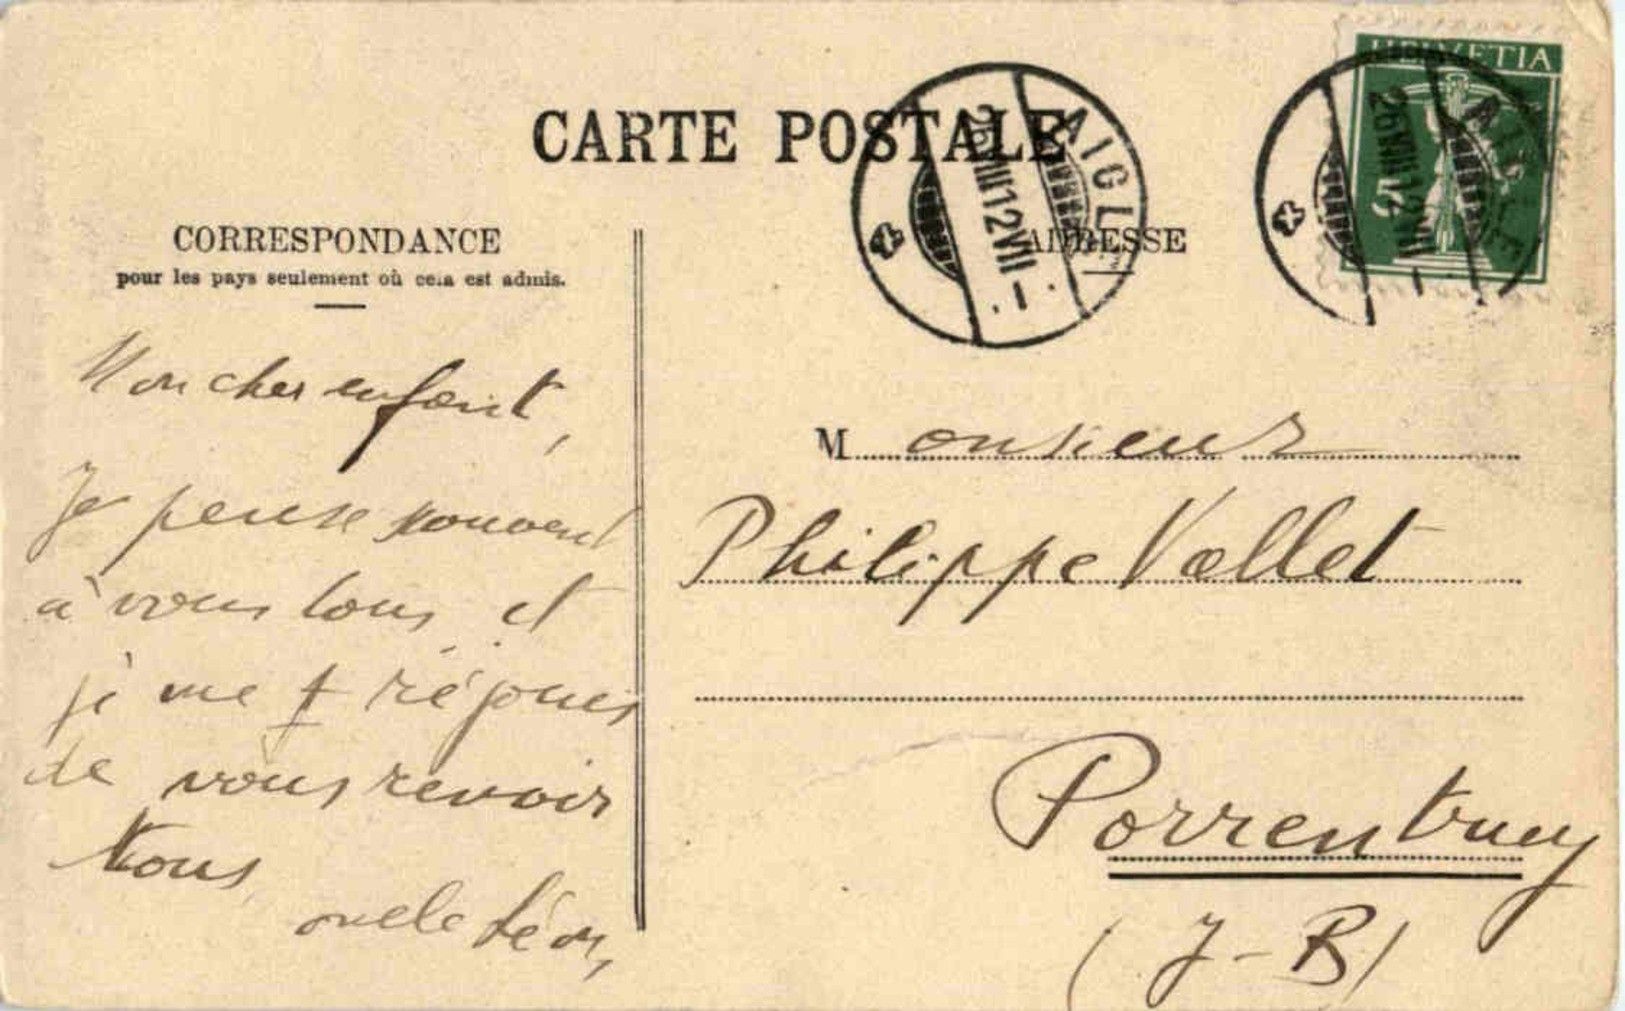 CARTE POSTALE
HELVETIA
5
AIGLE
26 VIII 12 VII –
AIGLE
26 VIII 12 VII –
CORRESPONDANCE
pour les pays seulement où cela est admis.
ADRESSE
Mon cher enfant,
Je pense souvent
à vous tous et
je me réjouis
de vous revoir
tous
oncle Léon,
Monsieur
Philippe Vallet
Porrentruy
(J-B)